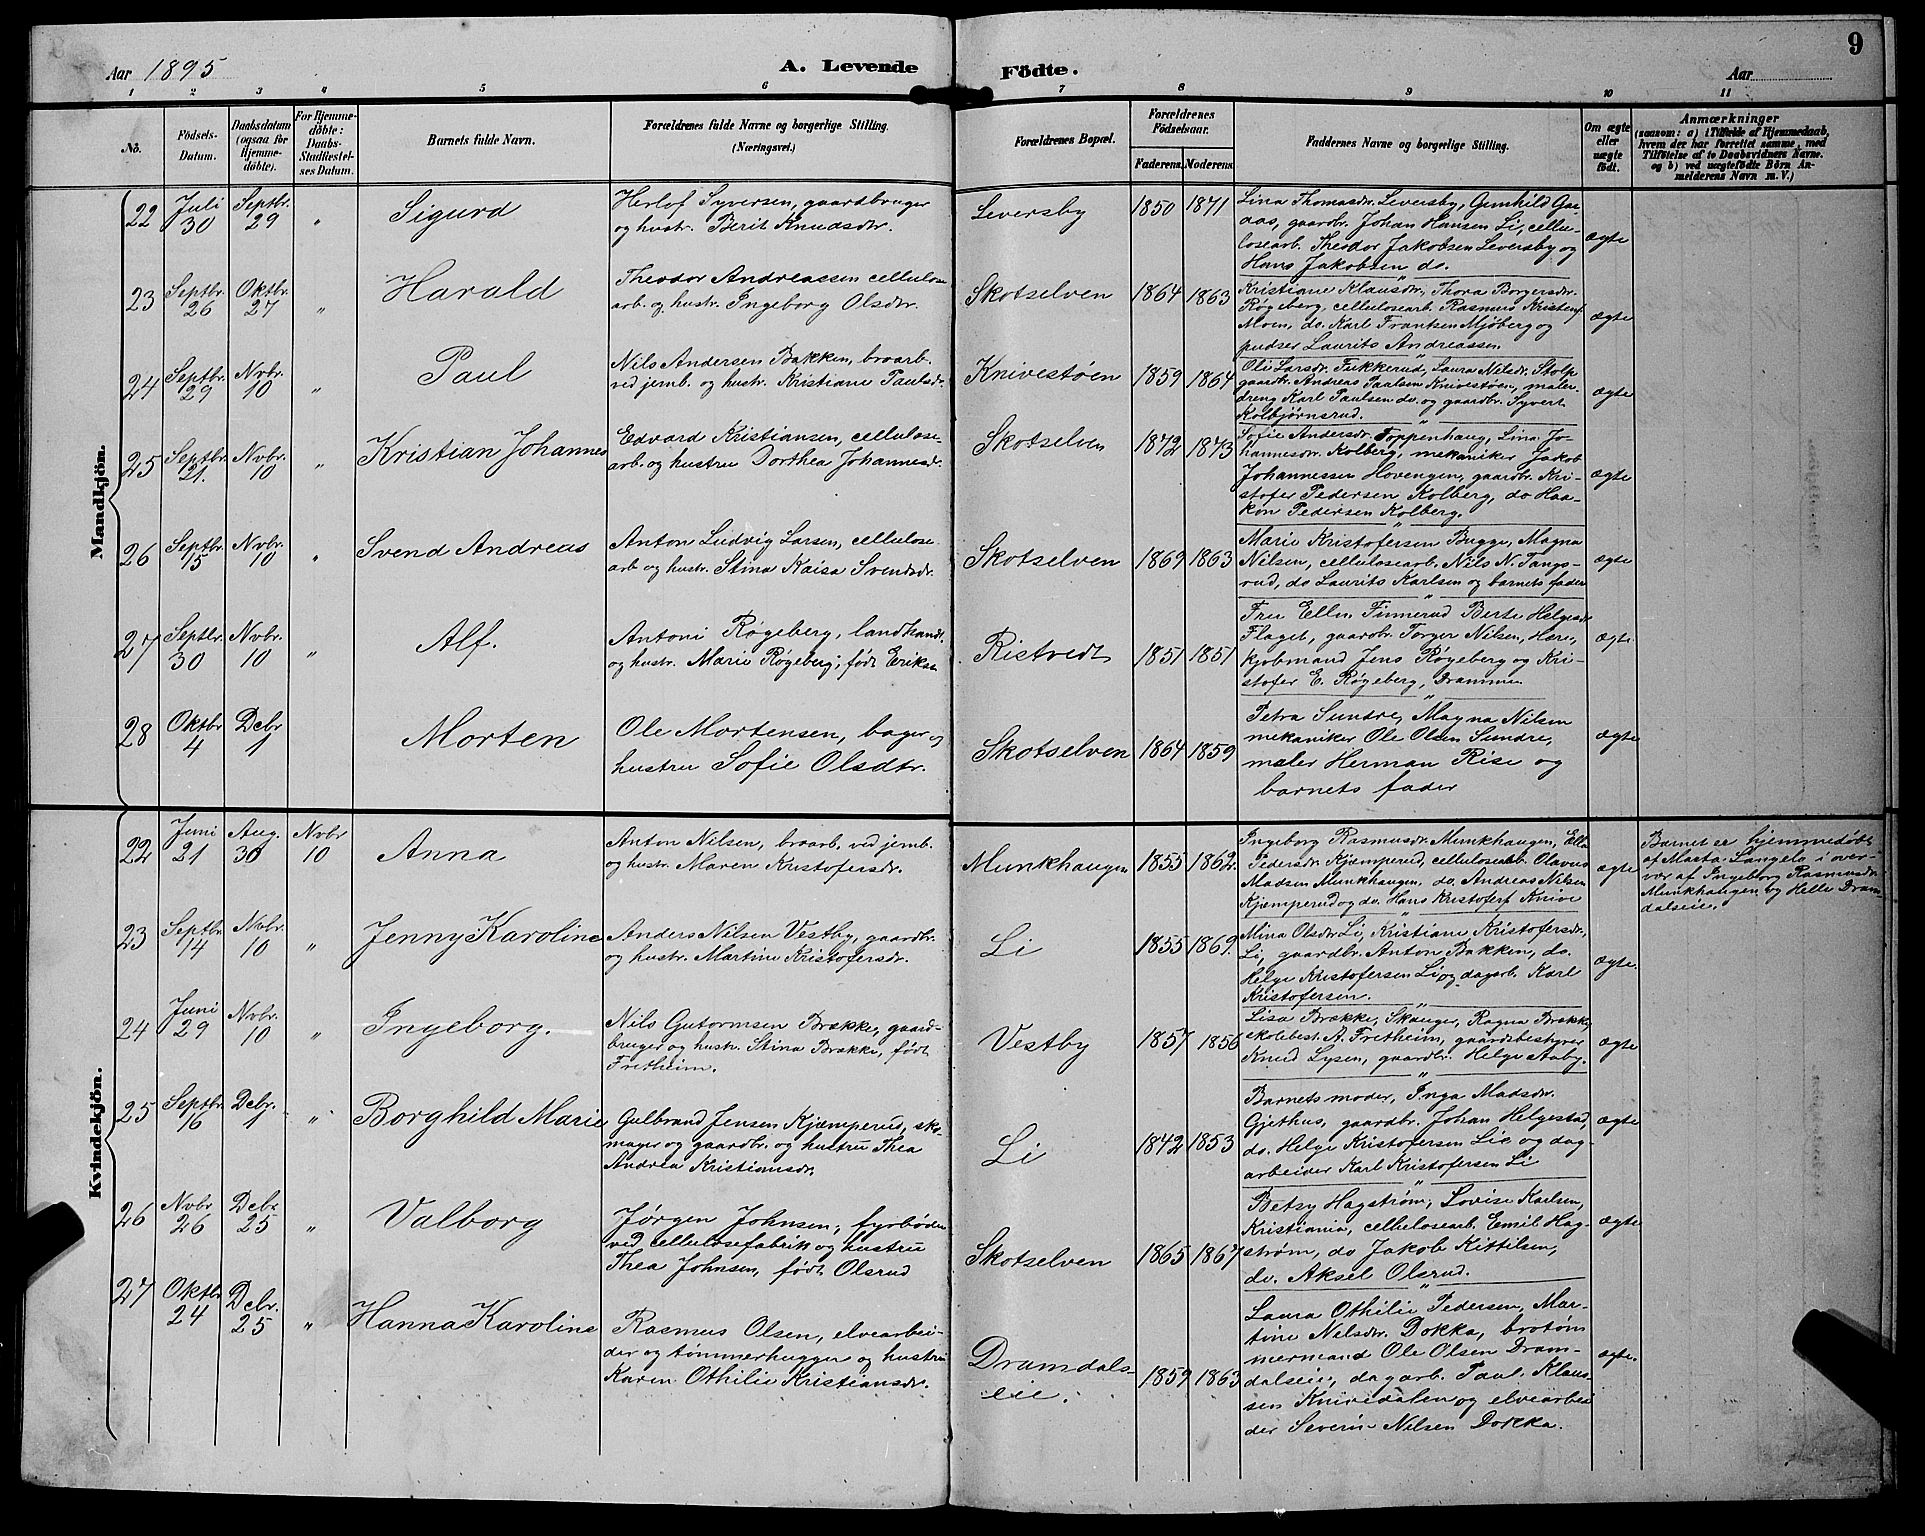 Aar 1895
A. Levende Födte.
Aar
9
1 2 3 4 5 6 7 8 9 10 11
No.
Födsels-
Datum.
Daabsdatum
(ogsaa for
Hjemme-
döbte).
For Hjemme-
döbte:
Daabs-
Stadfæstel-
ses Datum.
Barnets fulde Navn.
Forældrenes fulde Navne og borgerlige Stilling.
(Næringsvei.)
Forældrenes Bopæl.
Forældrenes
Födselsaar.
Faderens. Moderens.
Faddernes Navne og borgerlige Stilling.
Om ægte
eller
uægte
födt.
Anmærkninger
(saasom: a) i Tilfælde af Hjemmedaab,
hvem der har forrettet samme, med
Tilföielse af to Daabsvidners Navne.
og b) ved uægtefödte Börn An-
melderens Navn m. V.)
Mandkjön.
22 Juli 30 Septbr. 29 " Sigurd
Herlof Syversen, gaardbruger
og hustr. Berit Knudsdtr.
Leversby 1850 1871
Lina Thomasdr. Leversby, Gunhild Gaa-
aas, gaardbr. Johan Hansen Li, cellu-
losearb. Theodor Jakobsen Leversby og
Hans Jakobsen do.
ægte
23 Septbr. 26 Oktbr. 27 " Harald
Theodor Andreassen cellulose
arb. og hustr. Ingeborg Olsdtr.
Skotselven 1864 1863
Kristiane Klausdr., Thora Borgersdr.
Røgeberg, cellulosearb. Rasmus Kristens.
Moen, do. Karl Frantsen Mjöberg og
pudser Laurits Andreassen
ægte
24 Septbr. 29 Novbr. 10 " Paul
Nils Andersen Bakken, broarb.
ved jernb. og hustr. Kristiane Paulsdr.
Knivestøen 1859 1864
Oli Larsdr. Fukkerud, Laura Nilsdr. Stolp
gaardbr. Andreas Paulsen Knivestøen, maler-
dreng Karl Paulsen do. og gaardbr. Syvert
Kolbjørnsrud.
ægte
25 Septbr. 21. Novbr. 10 " Kristian Johannes
Edvard Kristiansen, cellulose-
arb. og hustru Dorthea Johannesdr.
Skotselven 1872 1873
Sofie Andersdr. Toppenhaug, Lina Jo-
hannesdr. Kolberg, mekaniker Jakob
Johannessen Hovengen, gaardbr. Kri-
stofer Pedersen Kolberg, do Haa-
kon Pedersen Kolberg.
ægte
26 Septbr. 15 Novbr. 10 " Svend Andreas
Anton Ludvig Larsen, cellulose-
arb og hustr. Stina Kaisa Svendsdr.
Skotselven 1869 1863
Marie Kristofersen Bugge, Magna
Nilsen, cellulosearb. Nils N. Tangs-
rud, do Laurits Karlsen og barnets fader
ægte
27 Septbr. 30 Novbr. 10 " Alf.
Antoni Røgeberg, landhandl.
og hustr. Marie Røgeberg, født Eriksen
Ristvedt 1851 1851
Fru Ellen Finnerud Berte Helgesdr
Flaget, gaardbr. Torger Nilsen, Hære,
kjøbmand Jens Røgeberg og Kri-
stofer E. Røgeberg, Drammen
ægte
28 Oktbr 4 Debr 1 Morten
Ole Mortensen, bager og
hustru Sofie Olsdtr.
Skotselven 1864 1859
Petra Sundre, Magna Nilsen
mekaniker Ole Olsen Sundre,
maler Herman Riise og
barnets fader
ægte
Kvindekjön.
22 Juni 21 Aug. 30 Novbr 10 Anna
Anton Nilsen, broarb. ved jernb.
og hustr. Maren Kristofersdr.
Munkhaugen 1855 1862
Ingeborg Rasmusdr. Munkhaugen, Ella
Pedersdr. Kjæmperud, cellulosearb. Olavus
Madsen Munkhaugen, do. Andreas Nilsen
Kjæmperud og do. Hans Kristofers. Knive
ægte
Barnet er hjemmedøbt
af Masta Langelo i over-
vær af Ingeborg Rasmusdr
Munkhaugen og Helle Dram-
dalseie.
23 Septbr 14 Novbr. 10 " Jenny Karoline
Anders Nilsen Vestby, gaardbr.
og hustr. Martine Kristofersdr.
Li 1855 1869.
Mina Olsdr Li, Kristiane Kristofersdr.
Li, gaardbr. Anton Bakken, do.
Helge Kristofersen Li og dagarb. Karl
Kristofersen.
ægte.
24 Juni 29 Novbr. 10 " Ingeborg.
Nils Gutormsen Brække, gaard-
bruger og hustr. Stina Brække, født
Fretheim.
Vestby 1857 1856
Lisa Brække, Skanger, Ragna Brække,
skolebest. A. Fretheim, gaardsbestyrer
Knud Lysen, gaardbr. Helge Aaby.
ægte
25 Septbr. 16 Debr. 1 " Borghild Marie
Gulbrand Jensen Kjæmperud, sko-
mager og gaardbr. og hustru Thea
Andrea Kristiansdr.
Li 1842 1853
Barnets moder, Inga Madsdr.
Gjethus, gaardbr. Johan Helgestad,
do. Helge Kristofersen Lie og dag-
arbeider Karl Kristofersen Li
ægte
26 Novbr 26 Debr. 25 " Valborg
Jørgen Johnsen, fyrbøder
ved cellulosefabrik og hustru
Thea Johnsen, født Olsrud
Skotselven 1865 1867
Betsy Hagstrøm, Lovise Karlsen,
Kristiania, cellulosearb. Emil Hag-
strøm, do Jakob Kittilsen,
do. Aksel Olsrud.
ægte
27 Oktbr 24 Debr. 25 " Hanna Karoline
Rasmus Olsen, elvearbei-
der og tømmerhugger og hustru
Karen Othilie Kristiansdr.
Dramdals-
eie. 1859 1863
Laura Othilie Pedersen, Mar-
tine Nelsdr. Dokka, brotøm-
mermand Ole Olsen Dram-
dalseie, dagarb. Paul Klaus-
sen Knivedalen og elvearbei
der Severin Nilsen Dokka.
ægte.